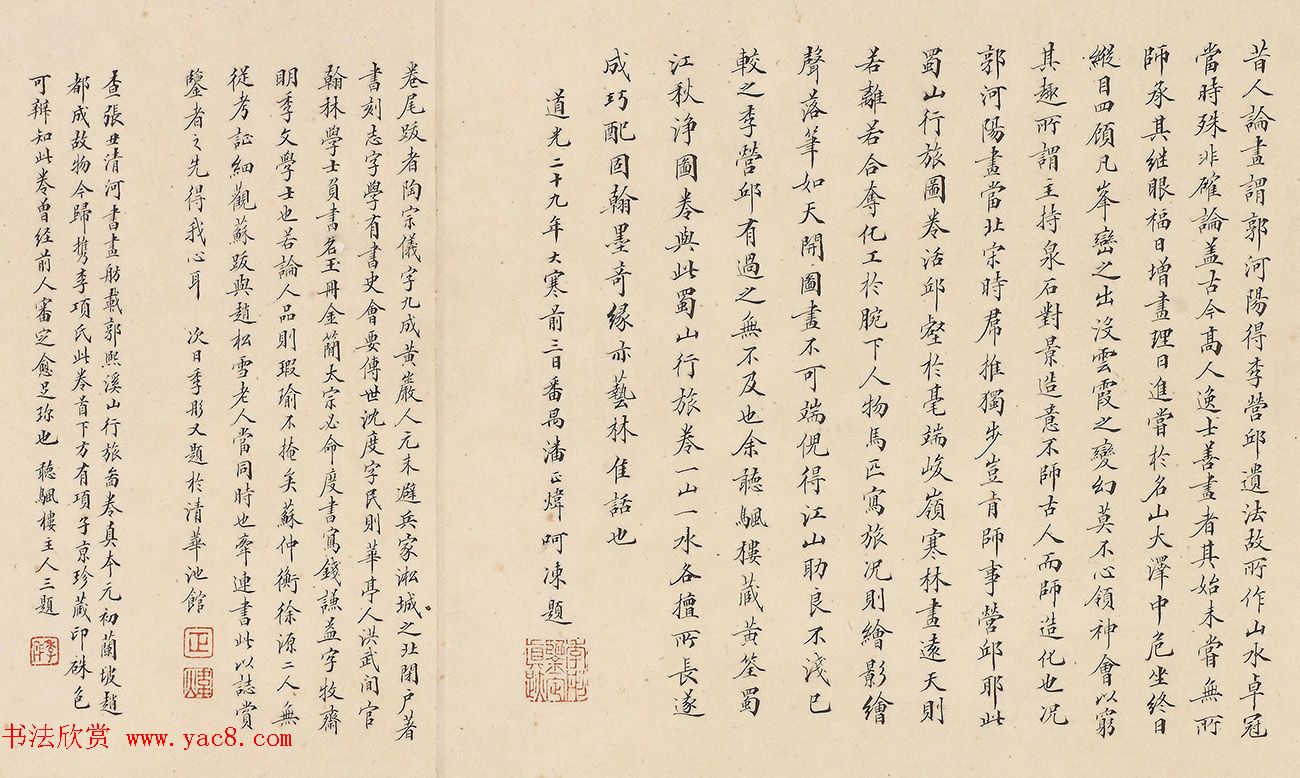 昔人論畫謂郭河陽得李營邱遺法故所作山水卓冠
當時殊非確論盖古今高人逸士善畫者其始未嘗無所
師承其继眼福日增畫理日進嘗於名山大澤中危坐終日
縱目四顧凡峯巒之出没雲霞之變幻莫不心領神會以窮
其趣所謂主持泉石對景造意不師古人而師造化也况
郭河陽畫當北宋時羣推獨步豈肯師事營邱耶此
蜀山行旅圖卷活邱壑於毫端峻嶺寒林畫遠天則
若離若合奪化工於腕下人物馬匹寫旅况則繪影繪
聲落筆如天開圖畫不可端倪得江山助良不淺已
較之李營邱有過之無不及也余聽颿樓蔵黄筌蜀
江秋淨圖卷與此蜀山行旅卷一山一水各擅所長遂
成巧配因翰墨奇緣亦藝林佳話也
道光二十九年大寒前三日番禺潘正煒呵凍題
卷尾跋者陶宗儀字九成黄巖人元末避兵家淞城之北閉户著
書刻志字學有書史會要傳世沈度字民則華亭人洪武间官
翰林學士負書名玉冊金簡太宗必命度書寫錢謙益字牧齋
明季文學士也若論人品則瑕瑜不掩矣蘇仲衡徐源二人無
從考証細觀蘇跋與趙松雪老人當同時也牽連書此以誌賞
鑒者之先得我心耳 次日季彤又題於清華池館
正煒
查張丑清河書畫舫載郭熙溪山行旅啚卷真本元初蘭坡趙
都成故物今歸檇李項氏此卷首下方有項子京珍蔵印硃色
可辨知此卷曾經前人審定愈足珎也 聽颿樓主人三題
书法欣赏 www.yac8.com